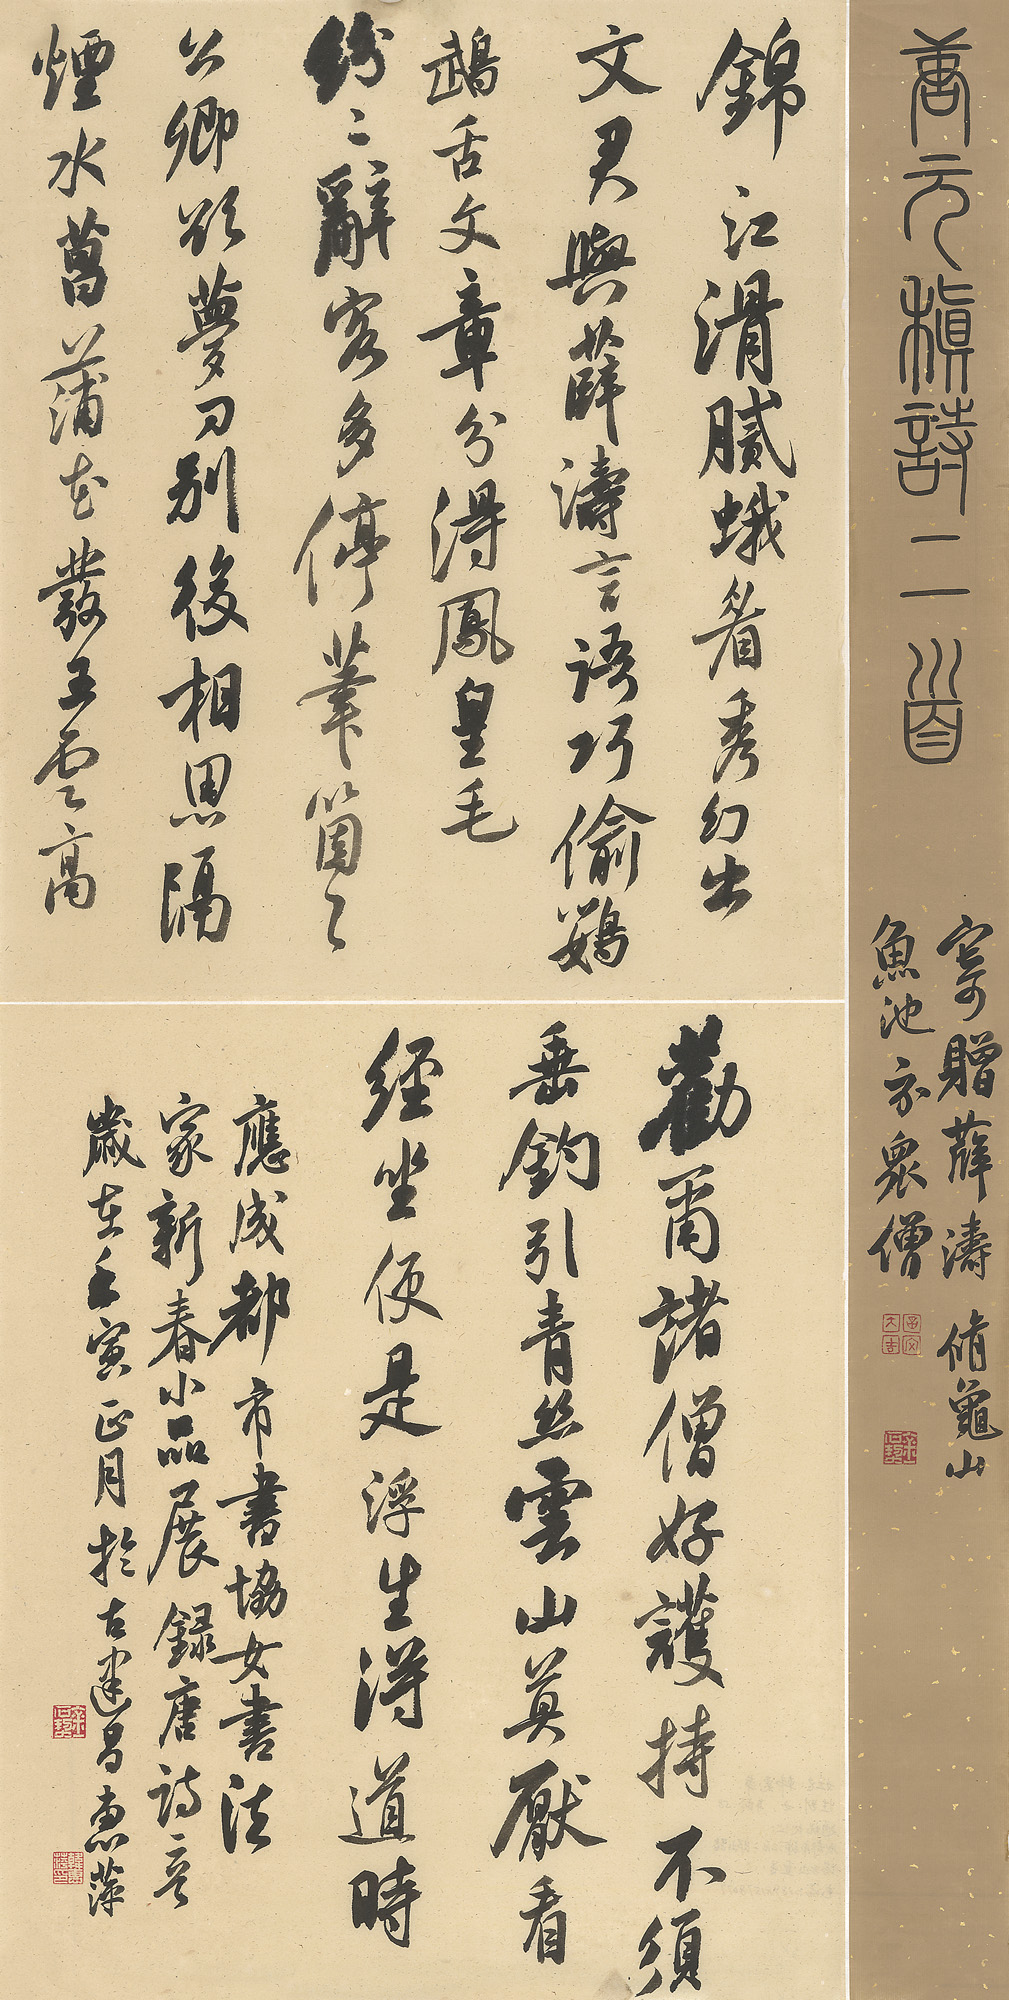 唐元稹詩二首
寄贈薛濤 脩龜山
魚池示眾僧
錦江滑膩蛾眉秀幻出
文君與薛濤言語巧偷鸚
鵡舌文章分得鳳皇毛
紛〻辭客多停筆箇〻
公卿欲夢刀別後相思隔
煙水菖蒲花發五雲高
勸爾諸僧好護持不須
垂釣引青絲雲山莫厭看
經坐便是浮生得道時
應成都市書協女書法
家新春小品展錄唐詩二首
歲在壬寅正月於古建昌惠萍